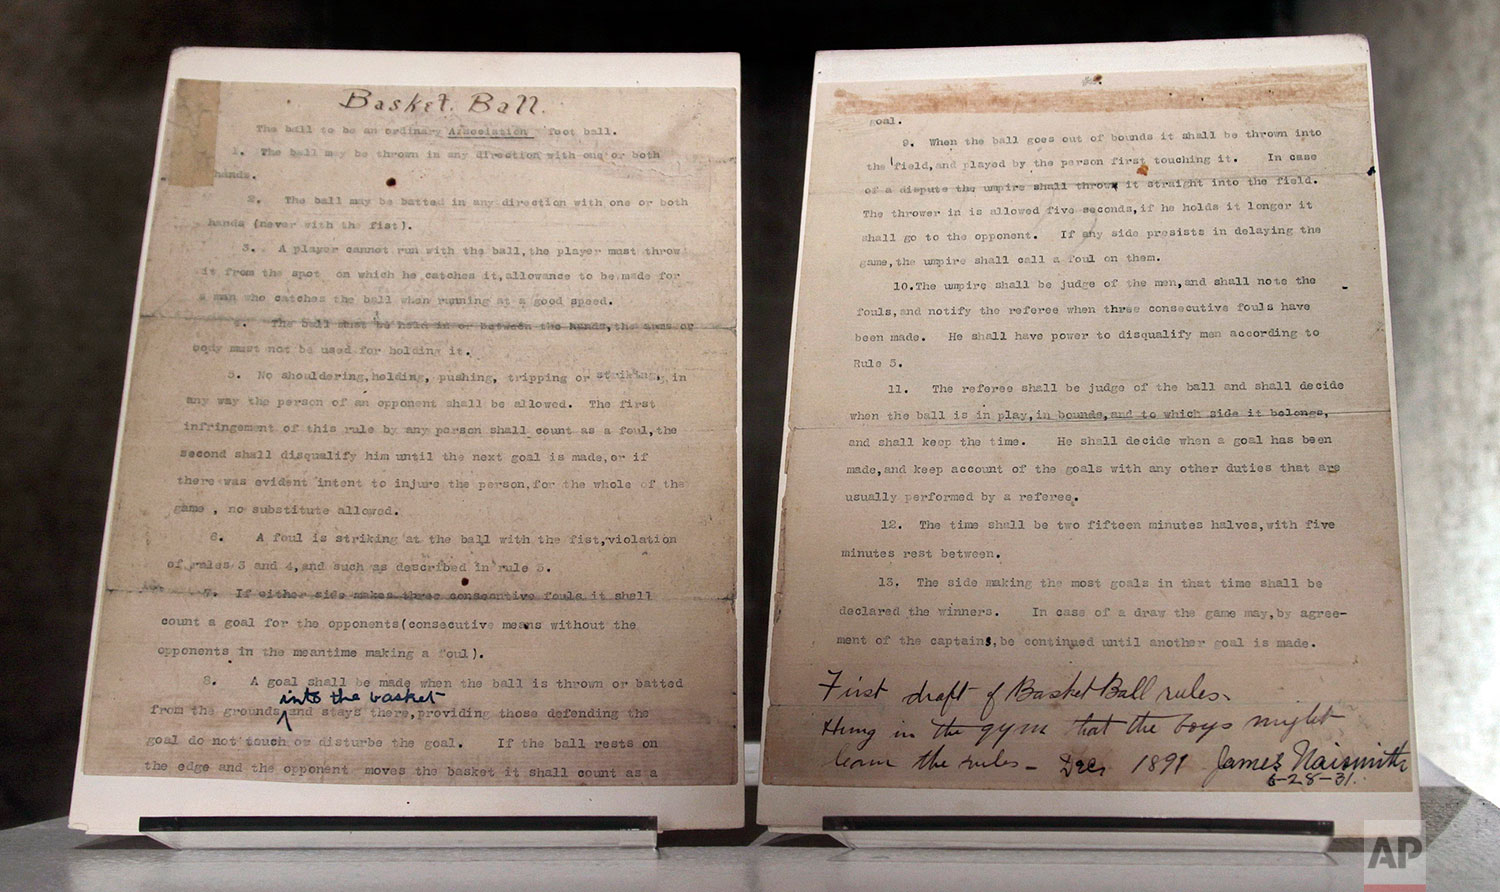 Basket Ball.
The ball to be an ordinary Association foot ball.
1. The ball may be thrown in any direction with one or both
hands.
2. The ball may be batted in any direction with one or both
hands (never with the fist).
3. A player cannot run with the ball,the player must throw
it from the spot on which he catches it,allowance to be made for
a man who catches the ball when running at a good speed.
4. The ball must be held in or between the hands,the arms or
body must not be used for holding it.
5. No shouldering,holding, pushing, tripping or striking, in
any way the person of an opponent shall be allowed. The first
infringement of this rule by any person shall count as a foul,the
second shall disqualify him until the next goal is made,or if
there was evident intent to injure the person,for the whole of the
game , no substitute allowed.
6. A foul is striking at the ball with the fist,violation
of rules 3 and 4,and such as described in rule 5.
7. If either side makes three consecutive fouls it shall
count a goal for the opponents(consecutive means without the
opponents in the meantime making a foul).
8. A goal shall be made when the ball is thrown or batted
into the basket
from the grounds and stays there,providing those defending the
goal do not touch or disturbe the goal. If the ball rests on
the edge and the opponent moves the basket it shall count as a
goal.
9. When the ball goes out of bounds it shall be thrown into
the field,and played by the person first touching it. In case
of a dispute the umpire shall throw it straight into the field.
The thrower in is allowed five seconds,if he holds it longer it
shall go to the opponent. If any side presists in delaying the
game,the umpire shall call a foul on them.
10.The umpire shall be judge of the men,and shall note the
fouls,and notify the referee when three consecutive fouls have
been made. He shall have power to disqualify men according to
Rule 5.
11. The referee shall be judge of the ball and shall decide
when the ball is in play,in bounds,and to which side it belongs,
and shall keep the time. He shall decide when a goal has been
made,and keep account of the goals with any other duties that are
usually performed by a referee.
12. The time shall be two fifteen minutes halves,with five
minutes rest between.
13. The side making the most goals in that time shall be
declared the winners. In case of a draw the game may,by agree-
ment of the captains,be continued until another goal is made.
First draft of Basket Ball rules.
Hung in the gym that the boys might
learn the rules - Dec. 1891 James Naismith
6-28-31.
AP